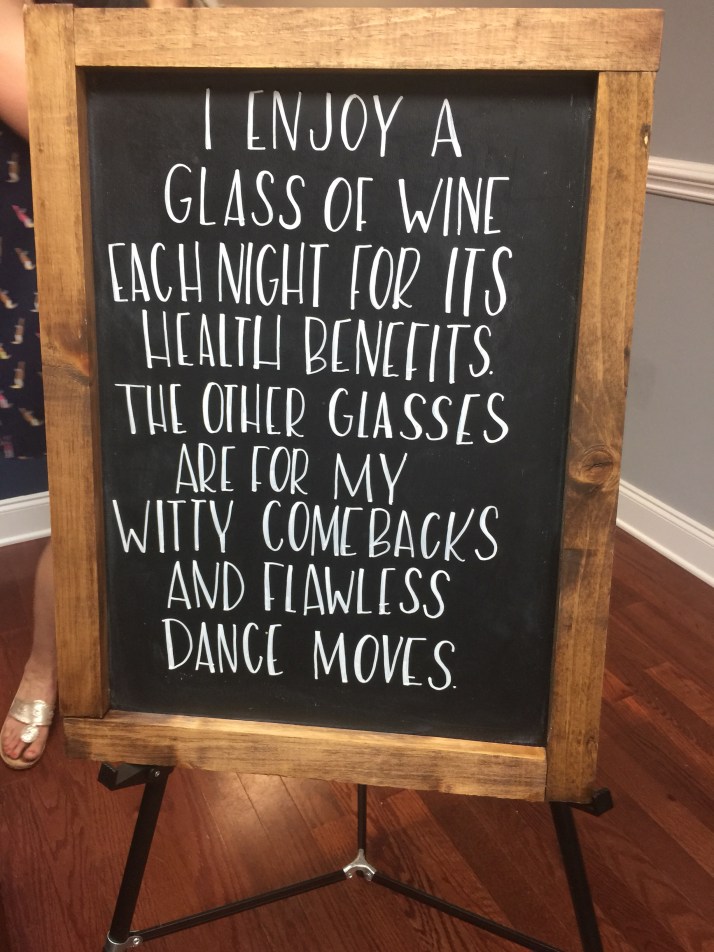 I ENJOY A
GLASS OF WINE
EACH NIGHT FOR ITS
HEALTH BENEFITS.
THE OTHER GLASSES
ARE FOR MY
WITTY COMEBACKS
AND FLAWLESS
DANCE MOVES.